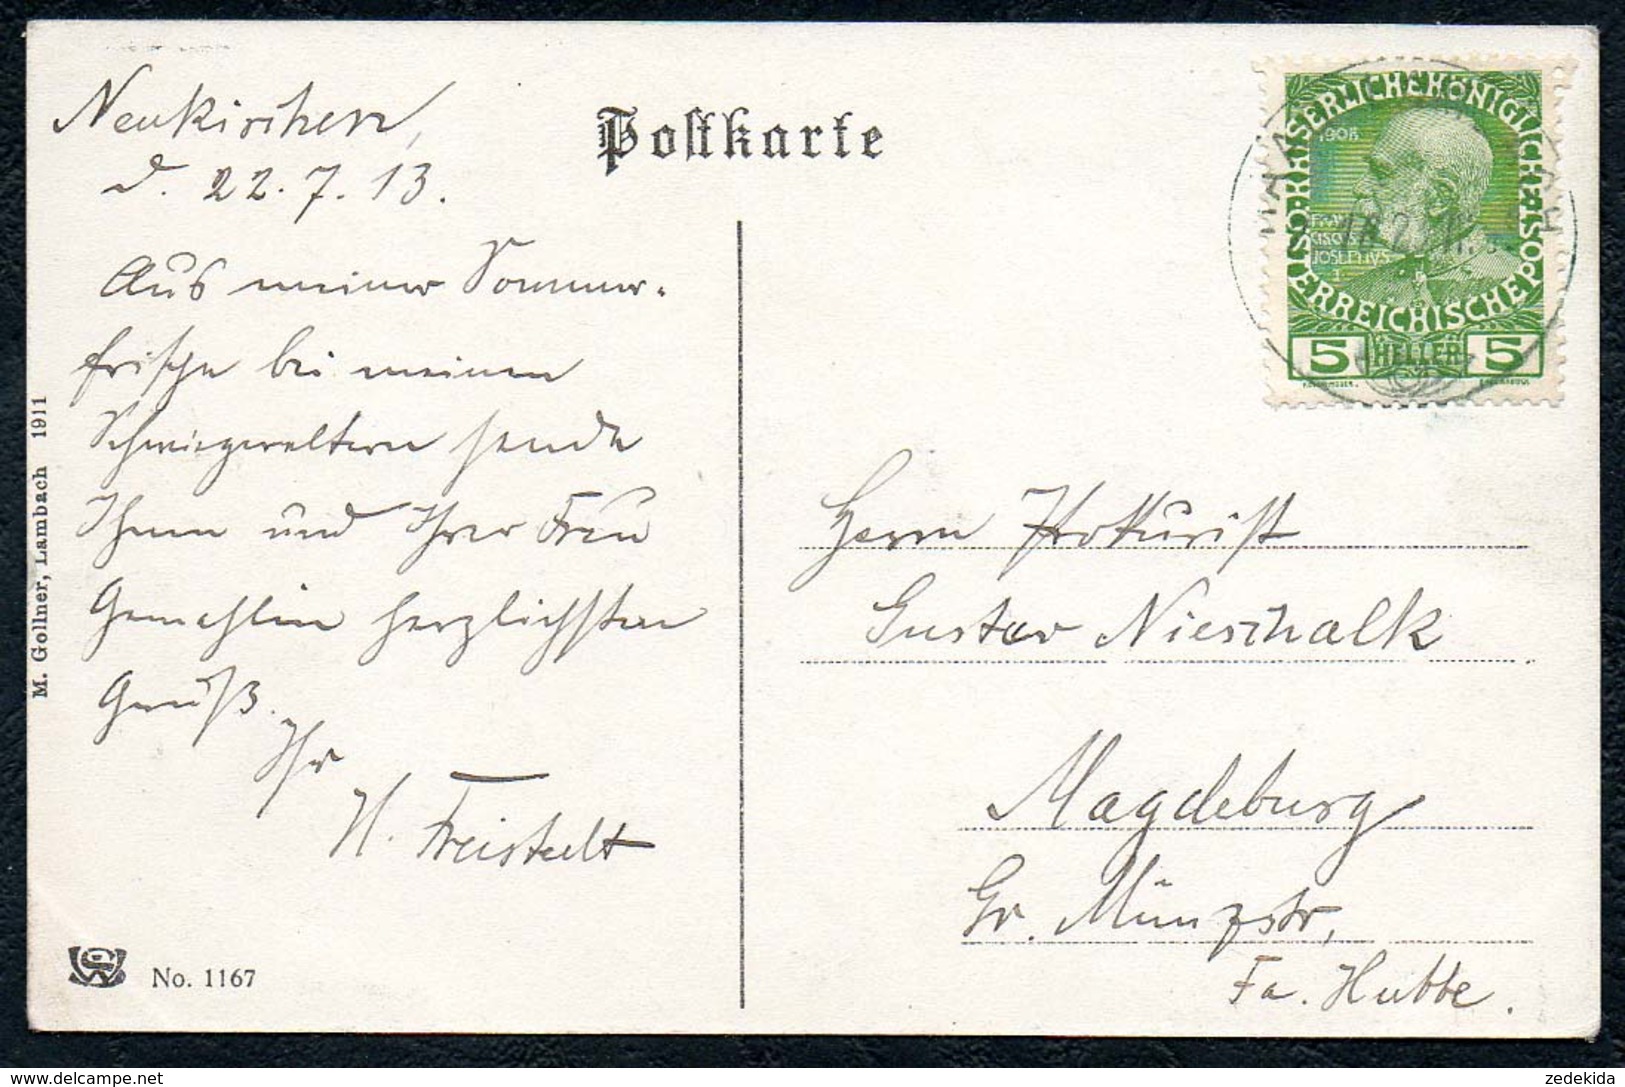 Neukirchen,
d. 22. 7. 13.
Aus meiner Sommer-
frische bei meinen
Schwiegereltern sende
Ihnen und Ihrer Frau
Gemahlin herzlichsten
Gruß.
Ihr
H. Freistedt
M. Gollner, Lambach 1911
No. 1167
Postkarte
KAISERLICHE KÖNIGLICHE ÖSTERREICHISCHE POST
1908
FRAN
CISCVS
IOSEPHVS
I
5 HELLER 5
Herrn Prokurist
Gustav Nieschalk
Magdeburg
Gr. Münzstr,
Fa. Hubbe.
zedekida